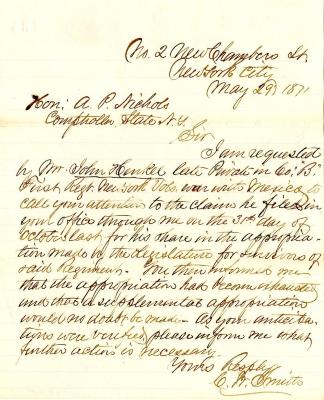 No. 2 New Chambers St.
New York City
May 29th 1871
Hon: A. P. Nichols
Comptroller State N.Y.
Sir
I am requested
by Mr. John Hunkel late Private in Co. "B"
First Regt. New York Vols. war with Mexico to
call your attention to the claim he filed in
your office through me on the 31st day of
October last for his share in the appropria-
tion made by the Legislature for Survivors of
said Regiment. You then informed me
that the appropriation had become exhausted
and that a supplemental appropriation
would no doubt be made. As your anticipa-
tions were verified, please inform me what
further action is necessary.
Yours Respfy.
C. W. Smith